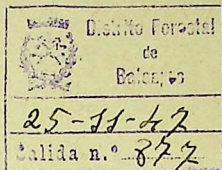 Distrito Forestal
de
Baleares
25-11-47
Salida n.º 877